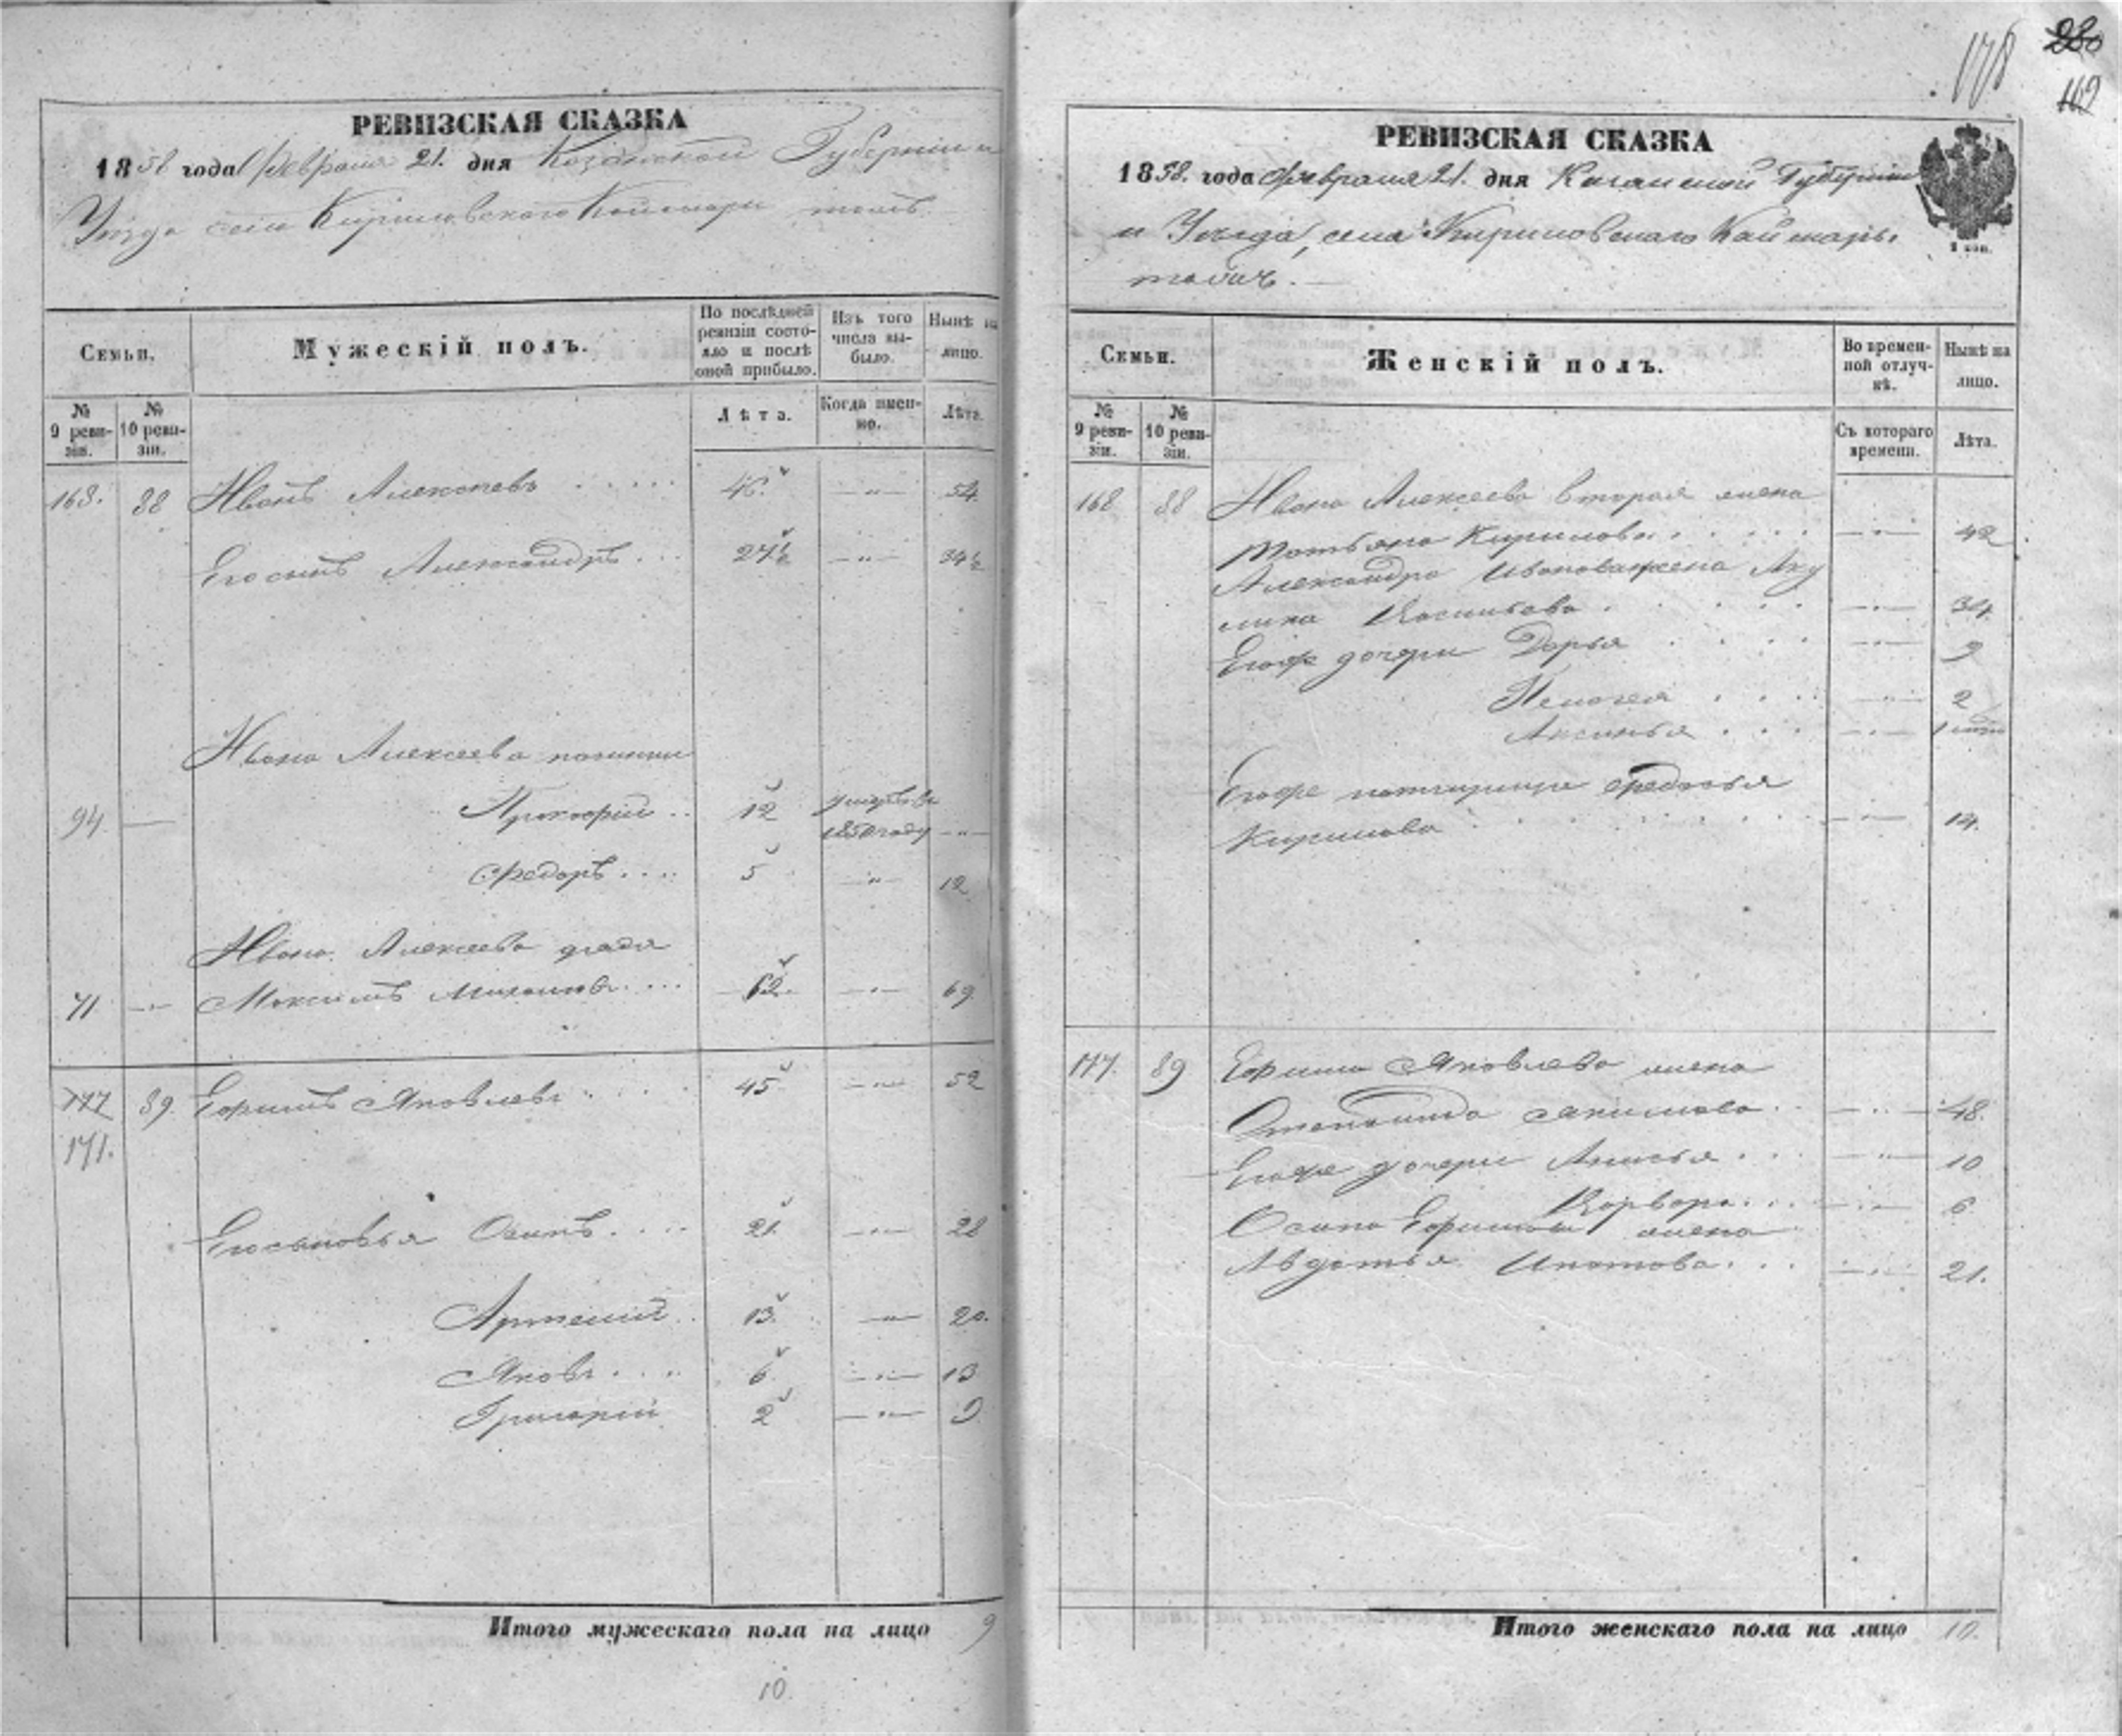 РЕВИЗСКАЯ СКАЗКА
1858 года Февраля 21. дня Казанской Губернии и
Уезда села Кириловскаго Каймары тожъ
Семьи.
Мужескій полъ.
По послѣдней ревизіи состояло и послѣ оной прибыло.
Изъ того числа выбыло.
Нынѣ на лицо.
№ 9 ревизіи.
№ 10 ревизіи.
Лѣта.
Когда именно.
Лѣта.
168. 88 Иванъ Алексѣевъ 46. —"— 54.
Его сынъ Александръ 27½ —"— 34½
Ивана Алексеева
94. — Прокофій 12 умеръ въ
1850 году —"—
Федоръ 5 —"— 12
Ивана Алексеева дядя
71. —"— Максимъ 62. —"— 69
177 89. Ефимъ Яковлевъ 45 —"— 52
171.
Его сыновья Осипъ 21. —"— 28
Артемій 13. —"— 20.
Яковъ 6 —"— 13
Григорій 2 —"— 9
Итого мужескаго пола на лицо 9
10.
178
230
169
РЕВИЗСКАЯ СКАЗКА
1858. года Февраля 21. дня Казанской Губернии
и Уезда, села Кириловскаго Каймары
тожъ.
Семьи.
Женскій полъ.
Во временной отлучкѣ.
Нынѣ на лицо.
№ 9 ревизіи.
№ 10 ревизіи.
Съ котораго времени.
Лѣта.
168 88 Ивана Алексеева вторая жена
Татьяна Кирилова —"— 42
Александра Иванова жена Аку
лина Васильева —"— 34
Егоже дочери Дарья —"— 9
Пелагея —"— 2
Аксинья —"— 1
Егоже Федосья
Кирилова —"— 14.
177. 89 Ефима Яковлева жена
Степанида Акимова —"— 48.
Егоже дочери Анисья —"— 10
Варвара —"— 6
Осипа Ефимова жена
Авдотья Ипатова —"— 21.
Итого женскаго пола на лицо 10.